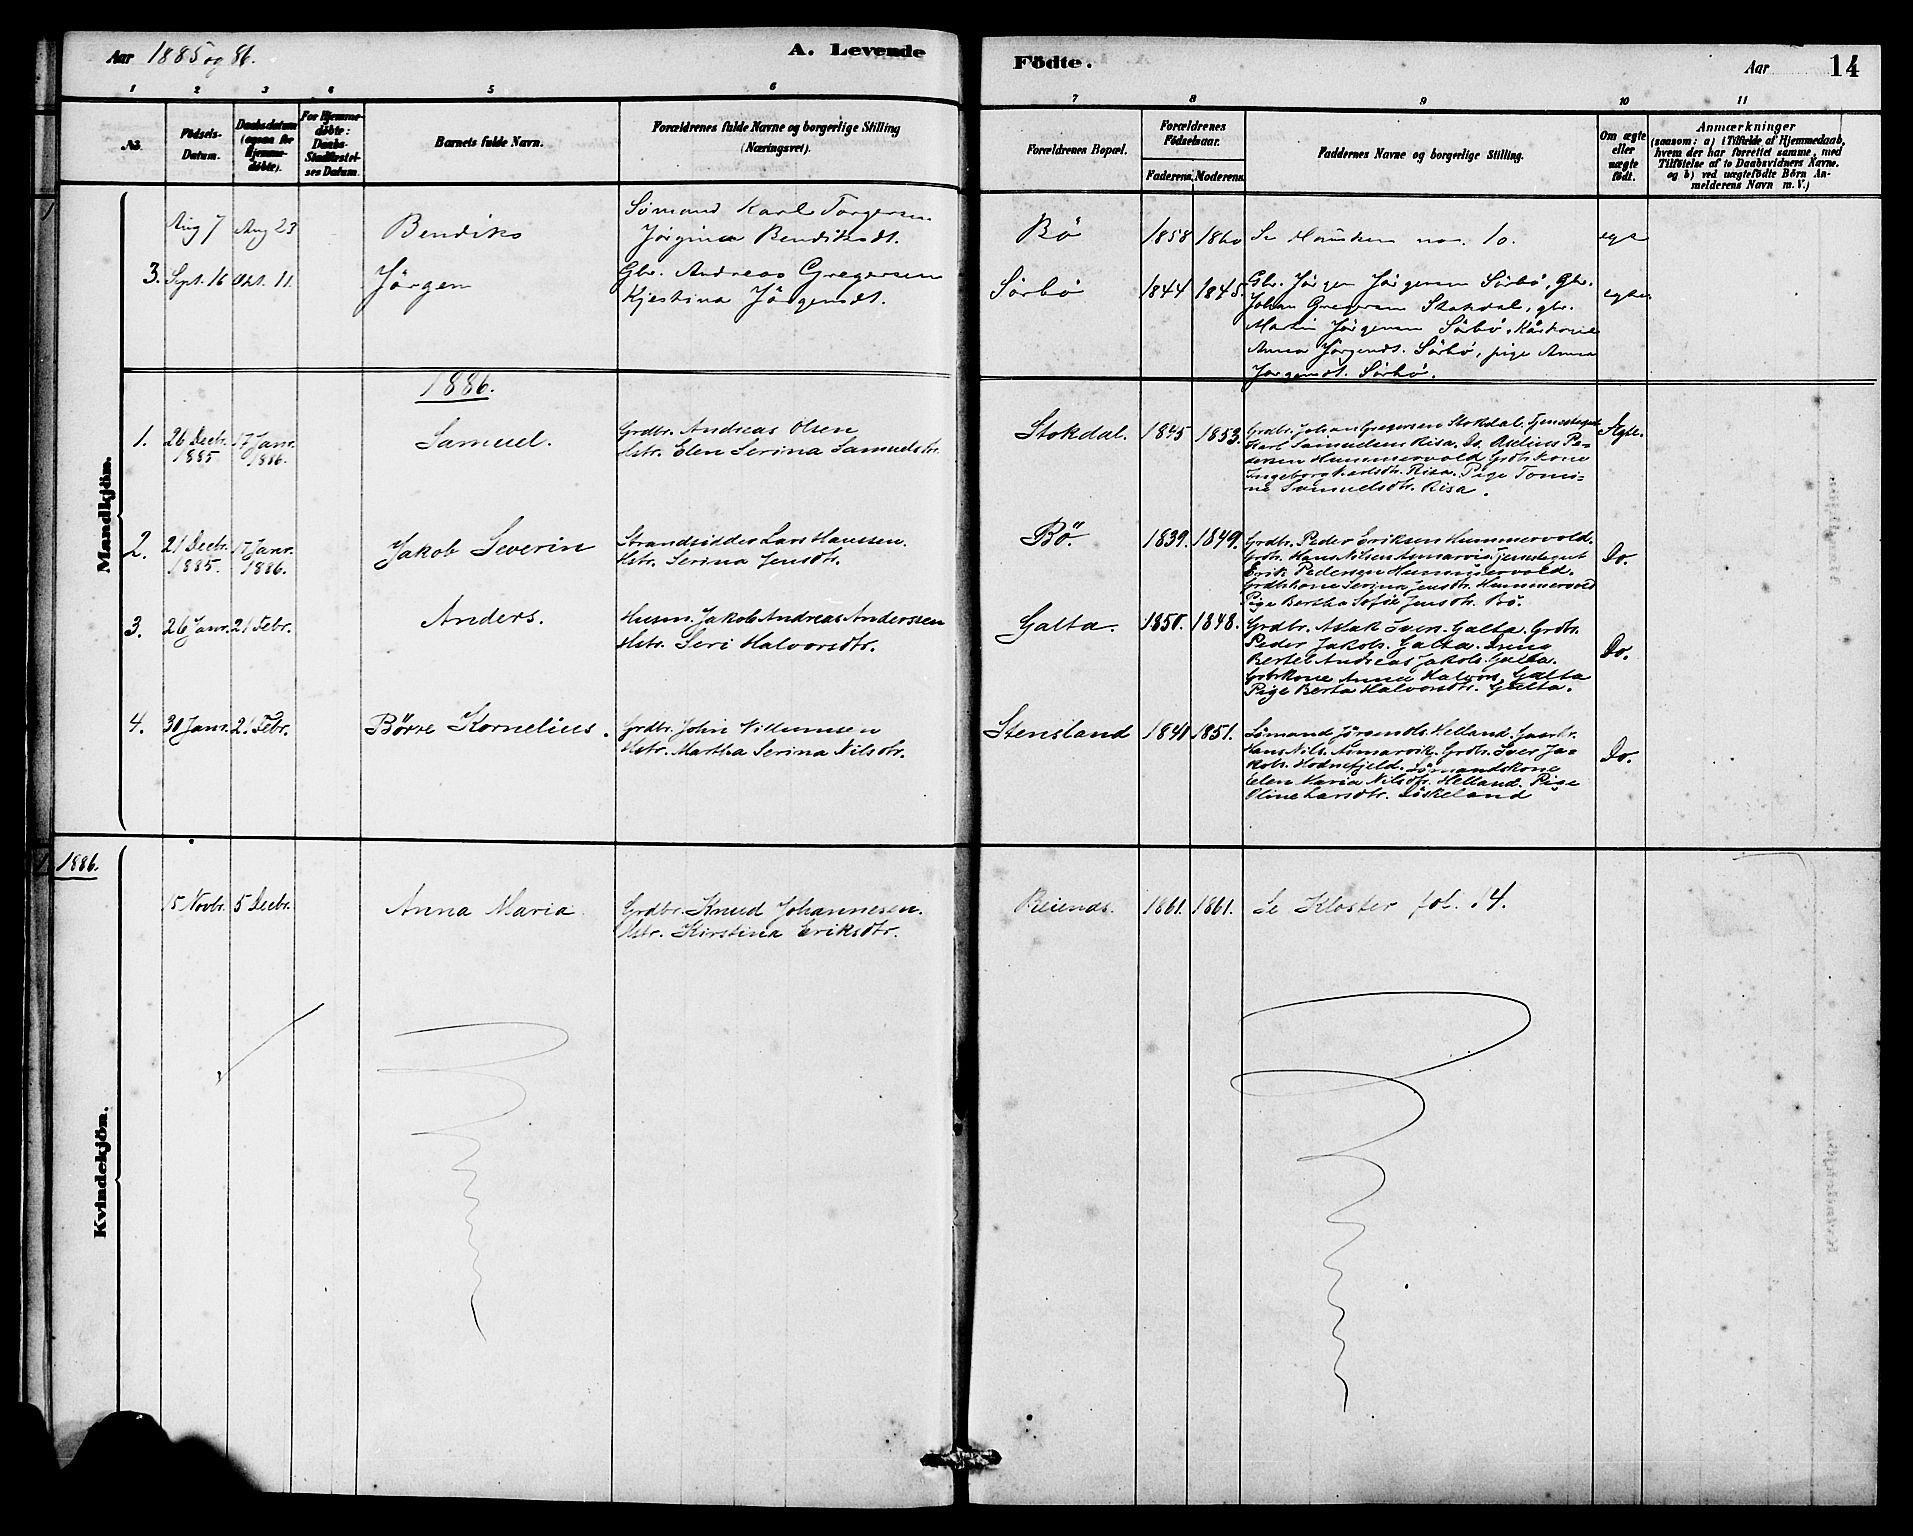 Aar 1885 og 86.
A. Levende
Födte.
Aar
14
1 2 3 4 5 6
7 8 9 10 11
No.
Födsels-
Datum.
Daabsdatum
(ogsaa for
Hjemme-
döbte).
For Hjemme-
döbte:
Daabs-
Stadfæstel-
ses Datum.
Barnets fulde Navn.
Forældrenes fulde Navne og borgerlige Stilling
(Næringsvei).
Forældrenes Bopæl.
Forældrenes
Födselsaar.
Faderens. Moderens.
Faddernes Navne og borgerlige Stilling.
Om ægte
eller
uægte
födt.
Anmærkninger
(saasom: a) i Tilfælde af Hjemmedaab,
hvem der har forrettet samme, med
Tilföielse af to Daabsvidners Navne.
og b) ved uægtefödte Börn An-
melderens Navn m. V.)
Mandkjön.
Aug 7 Aug 23 Bendiks
Sømand Karl Torgersen
Jørgina Bendiksdt.
Bö 1858 1860 Se no. 10. egte
3. Sept. 16 Okt. 11. Jörgen
Gbr. Andreas Gregersen
Kjestina Jörgensdt.
Sörbö 1844 1845. egte
Gbr. Jörgen Jörgensen Sörbö, Gbr.
Johan Gregersen Stokdal, gbr.
Martin Jörgensen Sörbö, Kårkone
Anna Jörgensdt. Sörbö, pige Anna
Jörgensdt. Sörbö.
1886.
1. 26 Decbr. 17 Janr. Samuel.
1885. 1886.
Grdbr. Andreas Olsen
Hstr. Elen Serina Samuelsdtr.
Stokdal. 1845 1853. Ægte.
Grdbr. Johan Gregersen Stokdal. Tjenestegut
Karl Samuelsen Risa. Do. Aselius Pe-
dersen Hummervold Grdbrkone
Ingeborg Karlsdtr. Risa. Pige Tomi-
ne Samuelsdtr. Risa.
2. 21 Decbr. 17 Janr. Jakob Severin
1885. 1886.
Strandsidder Lars Hanssen.
Hstr. Serina Jensdtr.
Bö. 1839. 1849. Do.
Grdbr. Peder Eriksen Hummervold.
Grdbr. Hans Nilsen Asmarvik. Tjenestegut
Erik Pedersen Hummervold.
Grdbrkone Serina Jensdtr. Hummervold
Pige Bertha Sofie Jensdtr. Bö.
3. 26 Janr. 21 Febr. Anders.
Husm. Jakob Andreas Anderssen
Hstr. Seri Halvorsdtr.
Galta. 1850. 1848. Do.
Grdbr. Aslak Ivers. Galta. Grdbr.
Peder Jakobs. Galta. Dreng
Bertel Andreas Jakobs. Galta.
Grdbrkone Anna Halvors. Galta
Pige Berta Halvorsdtr. Galta.
4. 30 Janr. 21 Febr. Börre Kornelius.
Grdbr. John Villumsen
Hstr. Martha Serina Nilsdtr.
Stensland 1840 1851. Do.
Sömand Helland. Gaardbr.
Hans Nils. Asmarvik. Grdbr. Iver Ja-
kobs. Hodnefjeld. Sömandskone
Elen Maria Nilsdtr. Helland. Pige
Oline Larsdtr. Eskeland
Kvindekjön.
1886.
15 Novbr. 5 Decbr. Anna Maria.
Grdbr. Knud Johannesen.
Hstr. Kirstina Eriksdtr.
Reienes. 1861. 1861. Se Kloster fol. 14.